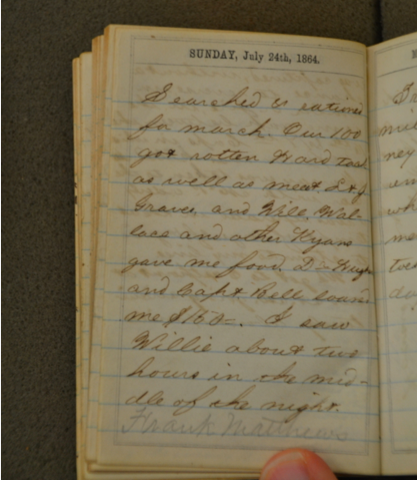 SUNDAY, July 24th, 1864.
Searched & rationed
for march. Our 100
got rotten Hard tack
as well as meat. L & J
Graves and Will. Wal-
lace and other Kyans
gave me food. Dr Hugh
and Capt Bell loaned
me $1.60. I saw
Willie about two
hours in the mid-
dle of the night.
Frank Matthews